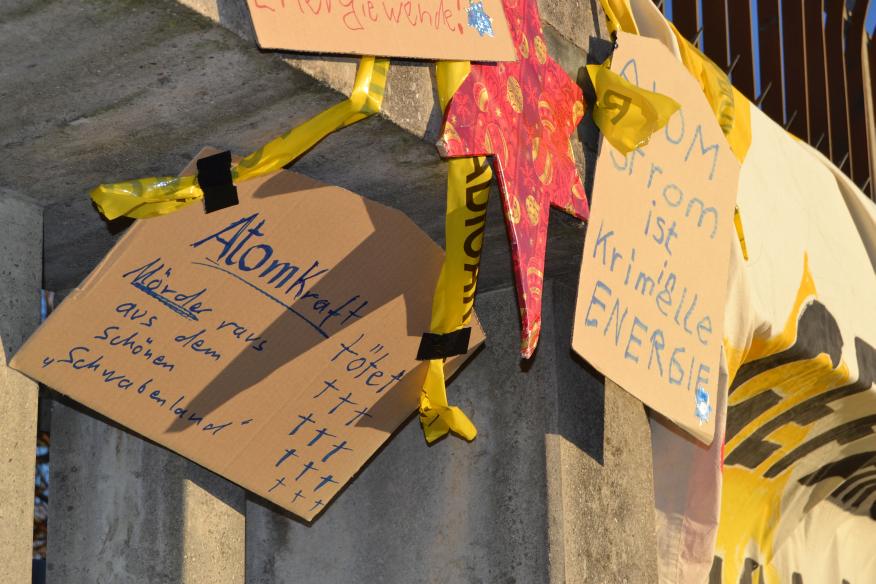 Energiewende!
AtomKraft
Mörder raus
aus dem
Schönen
„Schwabenland“
tötet
ATOM
Strom
ist
Krimielle
in
ENERGIE